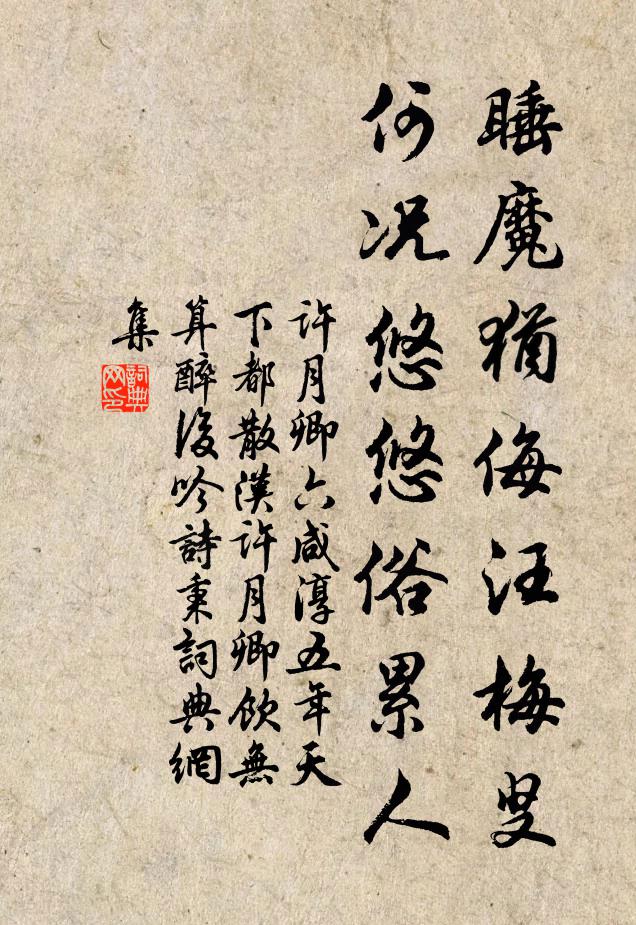 睡魔犹侮汪梅叟
何况悠悠俗累人
許月卿六咸淳五年天
下都散漢許月卿飲無
算醉後吟詩秉詞典網
集
詞典
网印